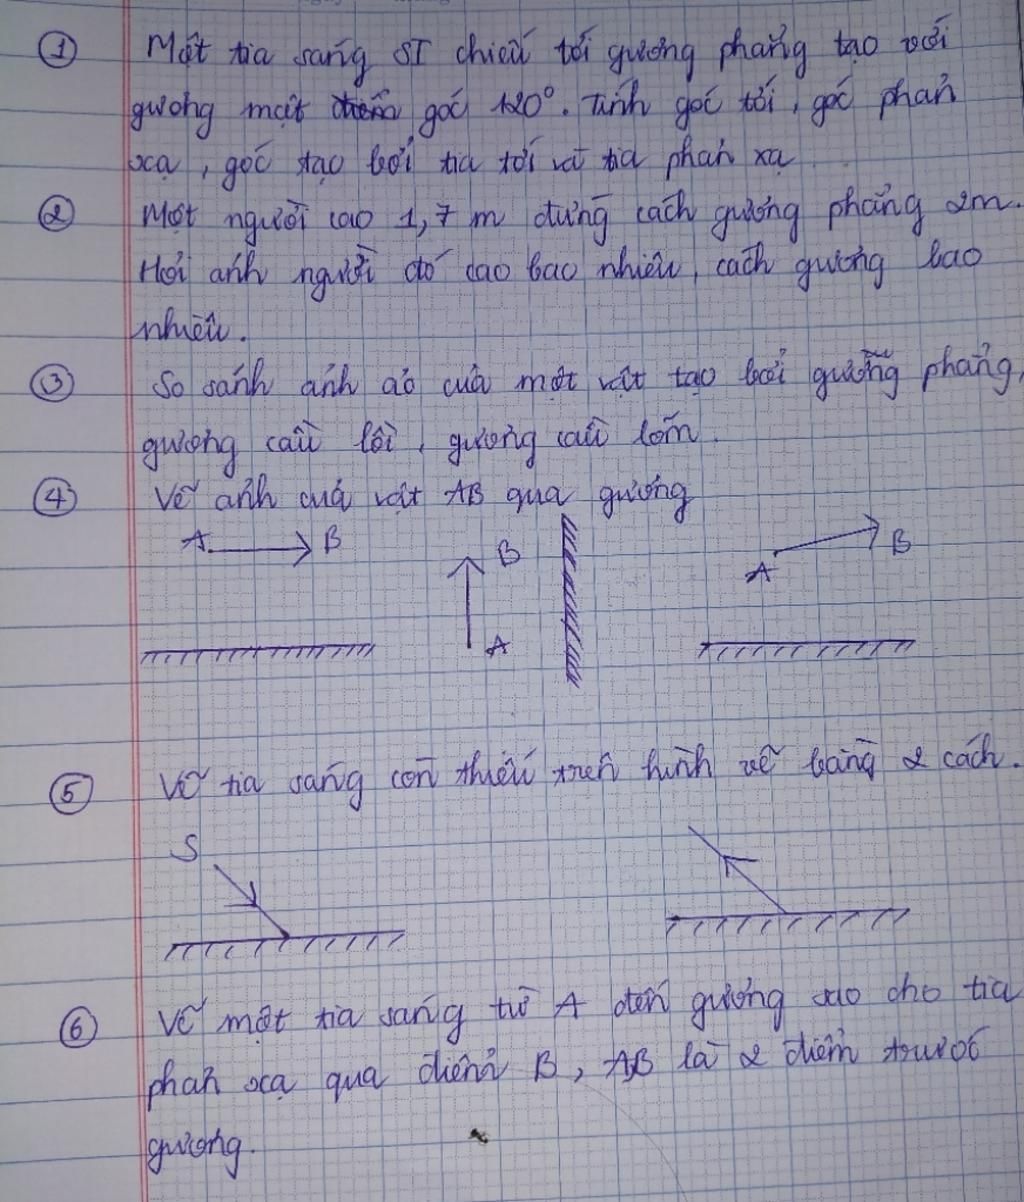 ① Một tia sáng SI chiếu tới gương phẳng tạo với
gương một góc 120°. Tính góc tới, góc phản
xạ, góc tạo bởi tia tới và tia phản xạ
② Một người cao 1,7 m đứng cách gương phẳng 2m.
Hỏi ảnh người đó cao bao nhiêu, cách gương bao
nhiêu.
③ So sánh ảnh ảo của một vật tạo bởi gương phẳng,
gương cầu lồi, gương cầu lõm.
④ Vẽ ảnh của vật AB qua gương
A B B A A B
⑤ Vẽ tia sáng còn thiếu trên hình vẽ bằng 2 cách.
S
⑥ Vẽ một tia sáng từ A đến gương sao cho tia
phản xạ qua điểm B, AB là 2 điểm trước
gương.